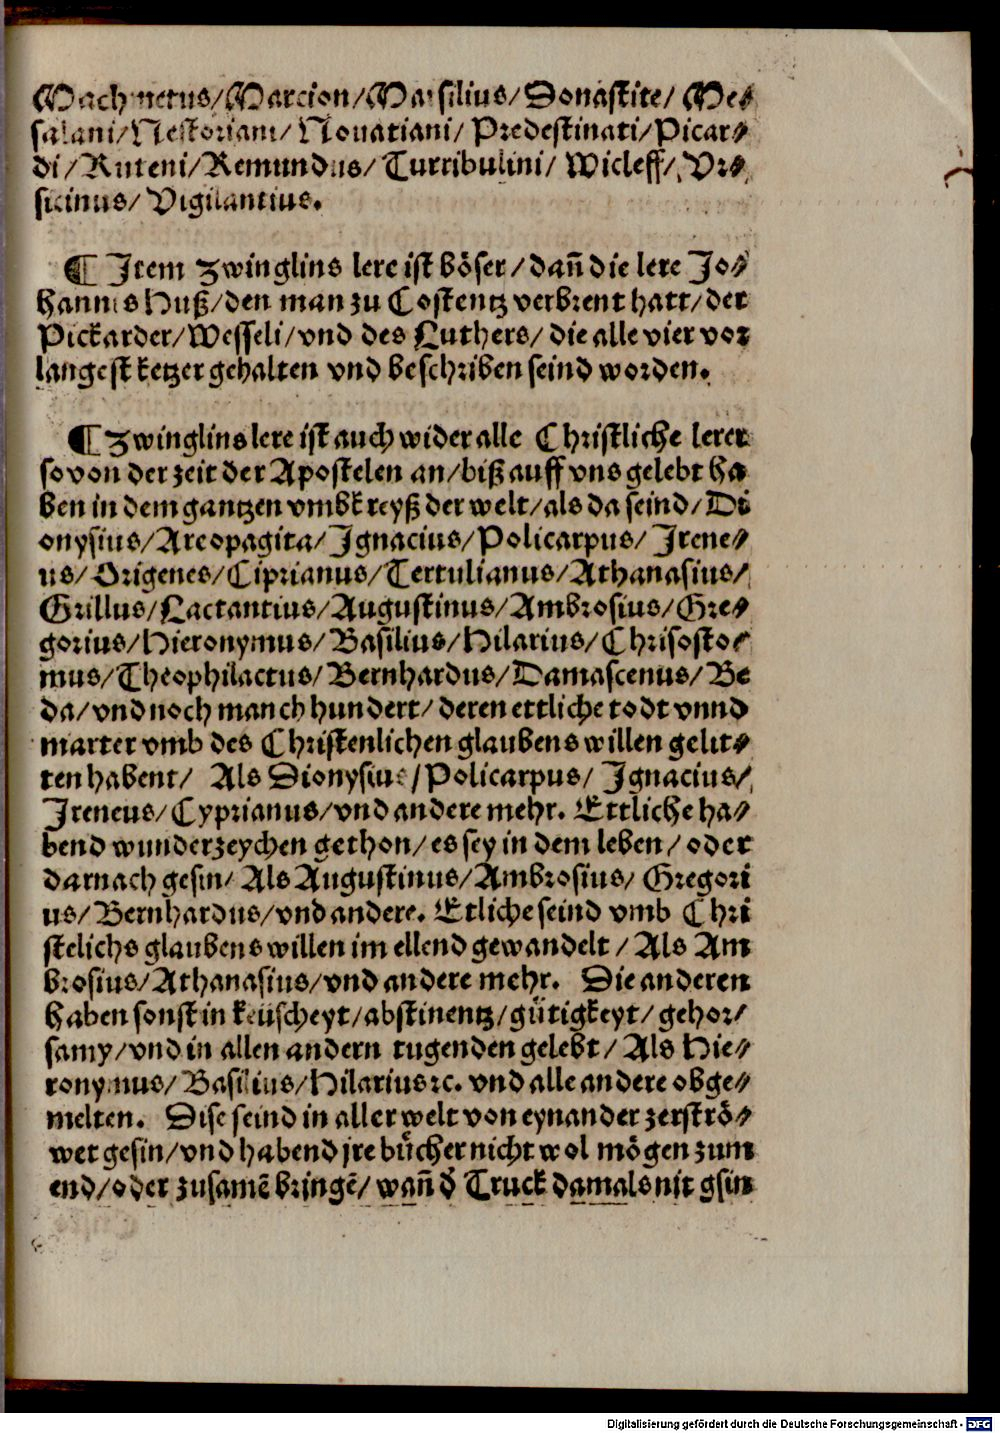 Machmetus/Marcion/Marsilius/Donastite/ Me⸗
salani/Nestoriani/ Nouatiani/ Predestinati/Picar⸗
di/Ruteni/Remundus/ Turribulini/ Wicleff/ Vr⸗
sicinus/ Vigilantius.
¶ Item zwinglins lere ist böser/dañ die lere Jo⸗
hannis Huß/den man zu Costentz verbrent hatt/der
Pickarder/Wesseli/vnd des Luthers/ die alle vier vor
langest ketzer gehalten vnd beschriben seind worden.
¶ Zwinglins lere ist auch wider alle Christliche lerer
so von der zeit der Apostelen an/biß auff vns gelebt ha
ben in dem gantzen vmbkreyß der welt/als da seind/Di
onysius/Areopagita/Ignacius/Policarpus/ Irene⸗
us/Origenes/Ciprianus/Tertulianus/Athanasius/
Grillus/Lactantius/Augustinus/Ambrosius/Gre⸗
gorius/Hieronymus/Basilius/Hilarius/Chrisosto⸗
mus/Theophilactus/Bernhardus/Damascenus/Be
da/vnd noch manch hundert/ deren ettliche todt vnnd
marter vmb des Christenlichen glaubens willen gelit⸗
ten habent/ Als Dionysius/Policarpus/ Ignacius/
Ireneus/Cyprianus/vnd andere mehr. Ettliche ha⸗
bend wunderzeychen gethon/es sey in dem leben/oder
darnach gesin/ Als Augustinus/Ambrosius/ Gregori
us/Bernhardus/vnd andere. Etliche seind vmb Chri
stelichs glaubens willen im ellend gewandelt/Als Am
brosius/Athanasius/vnd andere mehr. Die anderen
haben sonst in keüscheyt/abstinentz/gütigkeyt/gehor/
samy/vnd in allen andern tugenden gelebt/Als Hie⸗
ronymus/Basilius/Hilarius ꝛc. vnd alle andere obge⸗
melten. Dise seind in aller welt von eynander zerströ⸗
wet gesin/vnd habend jre bücher nicht wol mögen zum
end/oder zusamē bringē/wañ d̕ Truck damals nit gsin
Digitalisierung gefördert durch die Deutsche Forschungsgemeinschaft - DFG